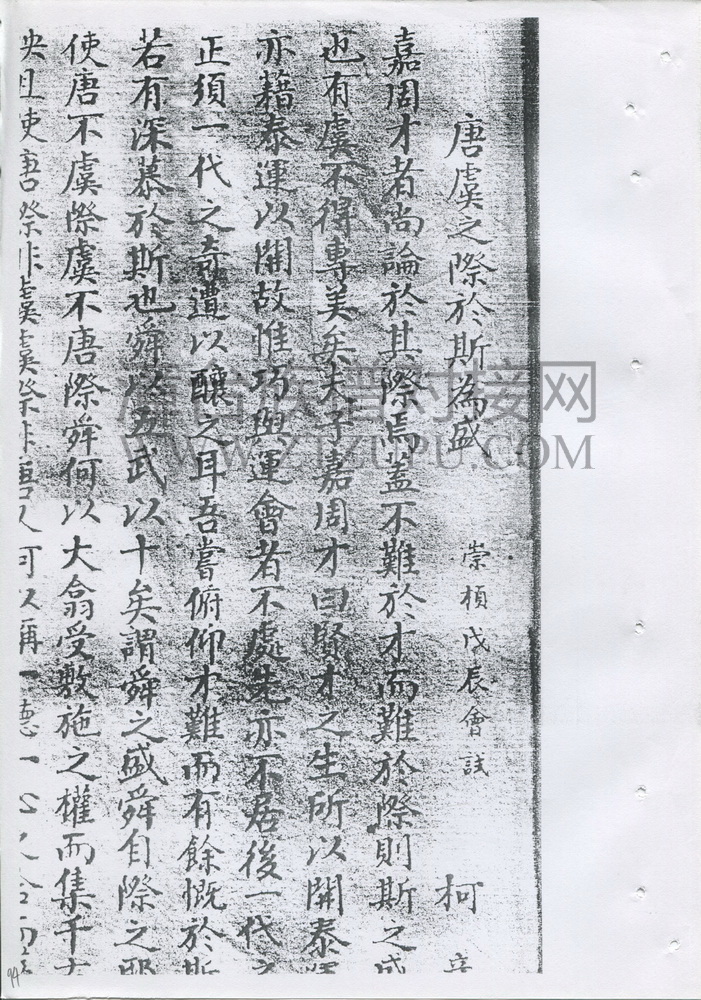 唐虞之際於斯為盛 崇禎戊辰會試 柯
嘉周才者尚論於其際焉蓋不難於才而難於際則斯之盛
也有虞不得專美矣夫子嘉周才曰賢才之生所以開泰
亦藉泰運以開故惟巧與運會者不處先亦不居後一代之
正須一代之奇遭以釀之耳吾嘗俯仰才難而有餘慨於斯
若有深慕於斯也舜以五武以十矣謂舜之盛舜自際之耶
使唐不虞際虞不唐際舜何以大翕受敷施之權而集千古
使唐際非虞虞際非 可以稱一德一心
WWW.ZTZUPU.COM
94